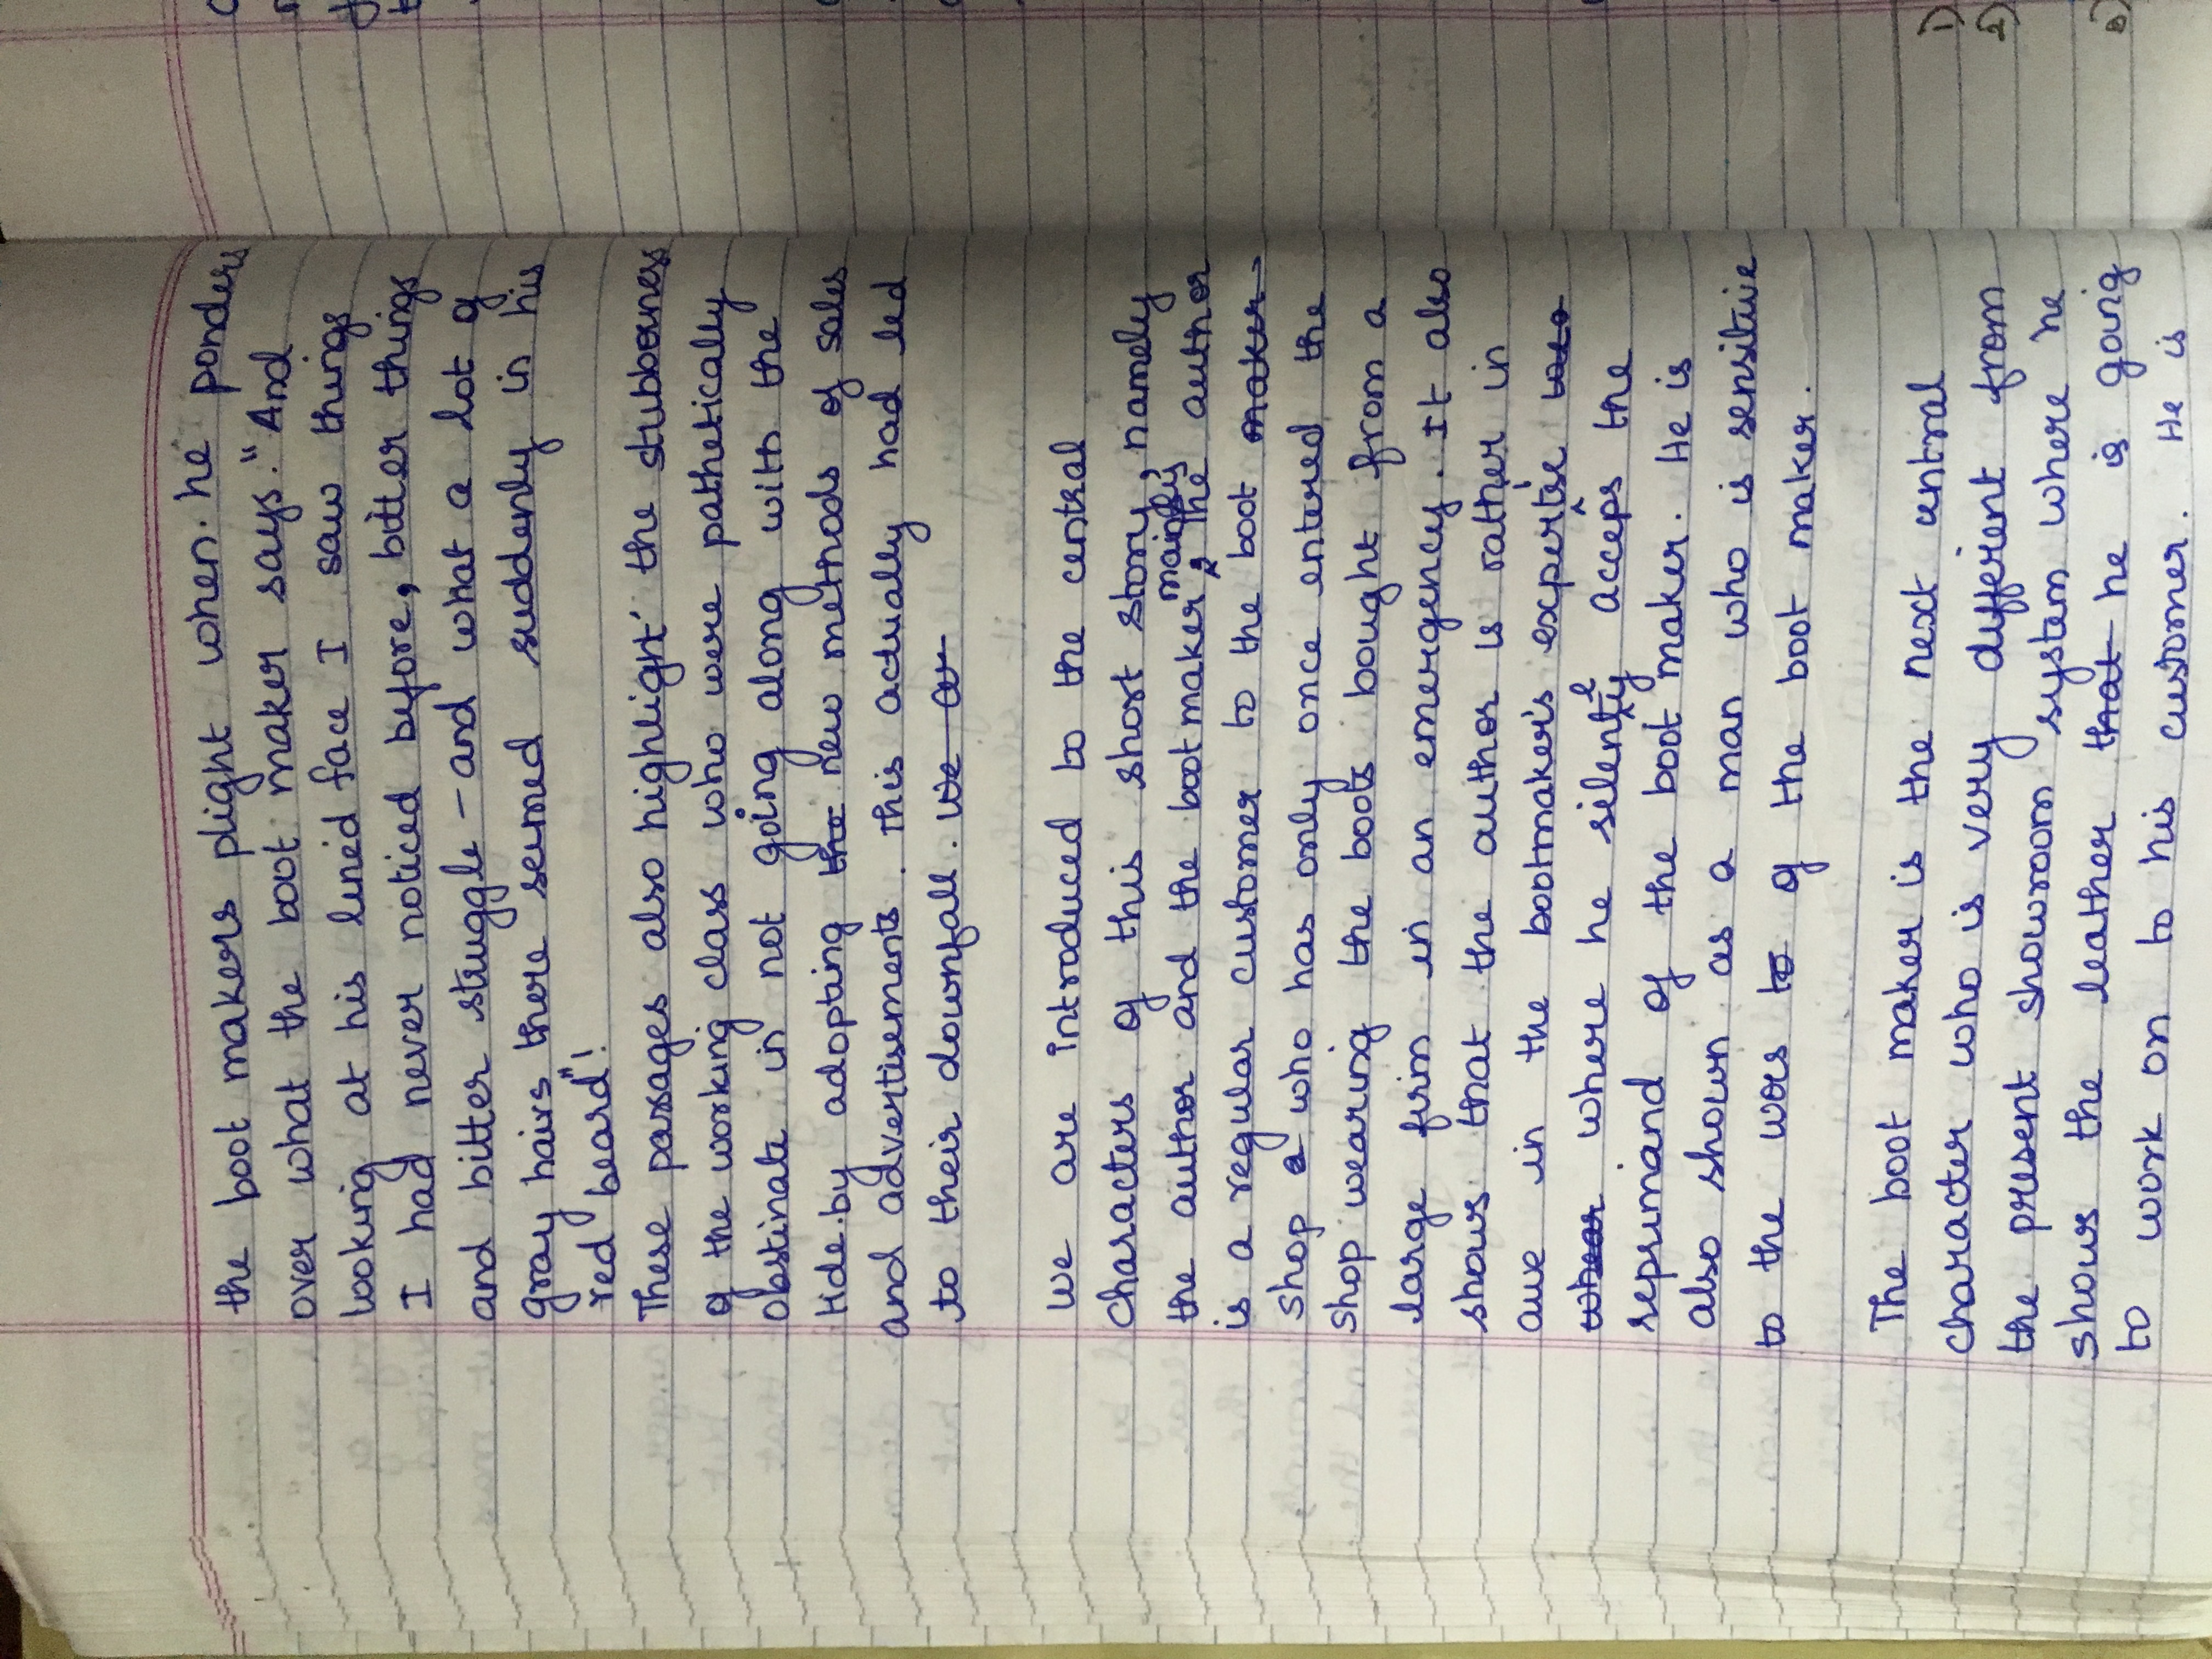 the boot makers plight when. he ponders
over what the boot maker says. "And
looking at his lined face I saw things
I had never noticed before, bitter things
and bitter struggle – and what a lot of
gray hairs there seemed suddenly in his
red beard"!
These passages also highlight the stubborness
of the working class who were pathetically
obstinate in not going along with the
tide. by adopting the new methods of sales
and advertisements. This actually had led
to their downfall. We ar
We are introduced to the central
characters of this short story, namely
mainly
the author and the boot maker, The author
is a regular customer to the boot maker
shop who has only once entered the
shop wearing the boots bought from a
large firm in an emergency. It also
shows that the author is rather in
awe in the bootmaker's expertise
where he silently acceps the
reprimand of the boot maker. He is
also shown as a man who is sensitive
to the woes to of the boot maker.
The boot maker is the next central
character who is very different from
the present showroom system where he
shows the leather that he is going
to work on to his customer. He is
1)
2)
3)